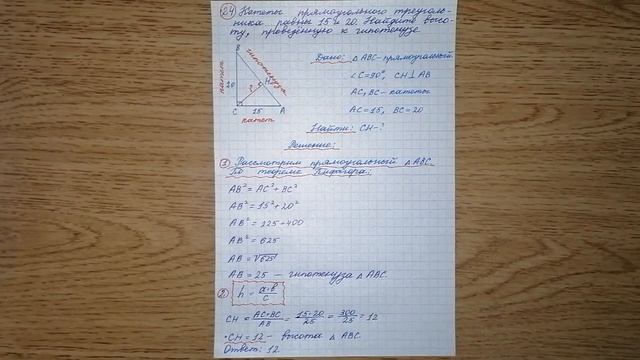 24 Катеты прямоугольного треуголь-
ника равны 15 и 20. Найдите высо-
ту, проведённую к гипотенузе.
B
гипотенуза
катет
20
H
?
C 15 A
катет
Дано: △ABC-прямоугольный.
∠C=90°, CH⊥AB
AC, BC - катеты
AC=15, BC=20
Найти: CH-?
Решение:
1 Рассмотрим прямоугольный △ABC.
По теореме Пифагора:
AB²=AC²+BC²
AB²=15²+20²
AB²=225+400
AB²=625
AB=√625
AB=25 — гипотенуза △ABC.
2 h = a·b/c
CH = AC·BC/AB = 15·20/25 = 300/25 = 12
CH=12 - высота △ABC
Ответ: 12.